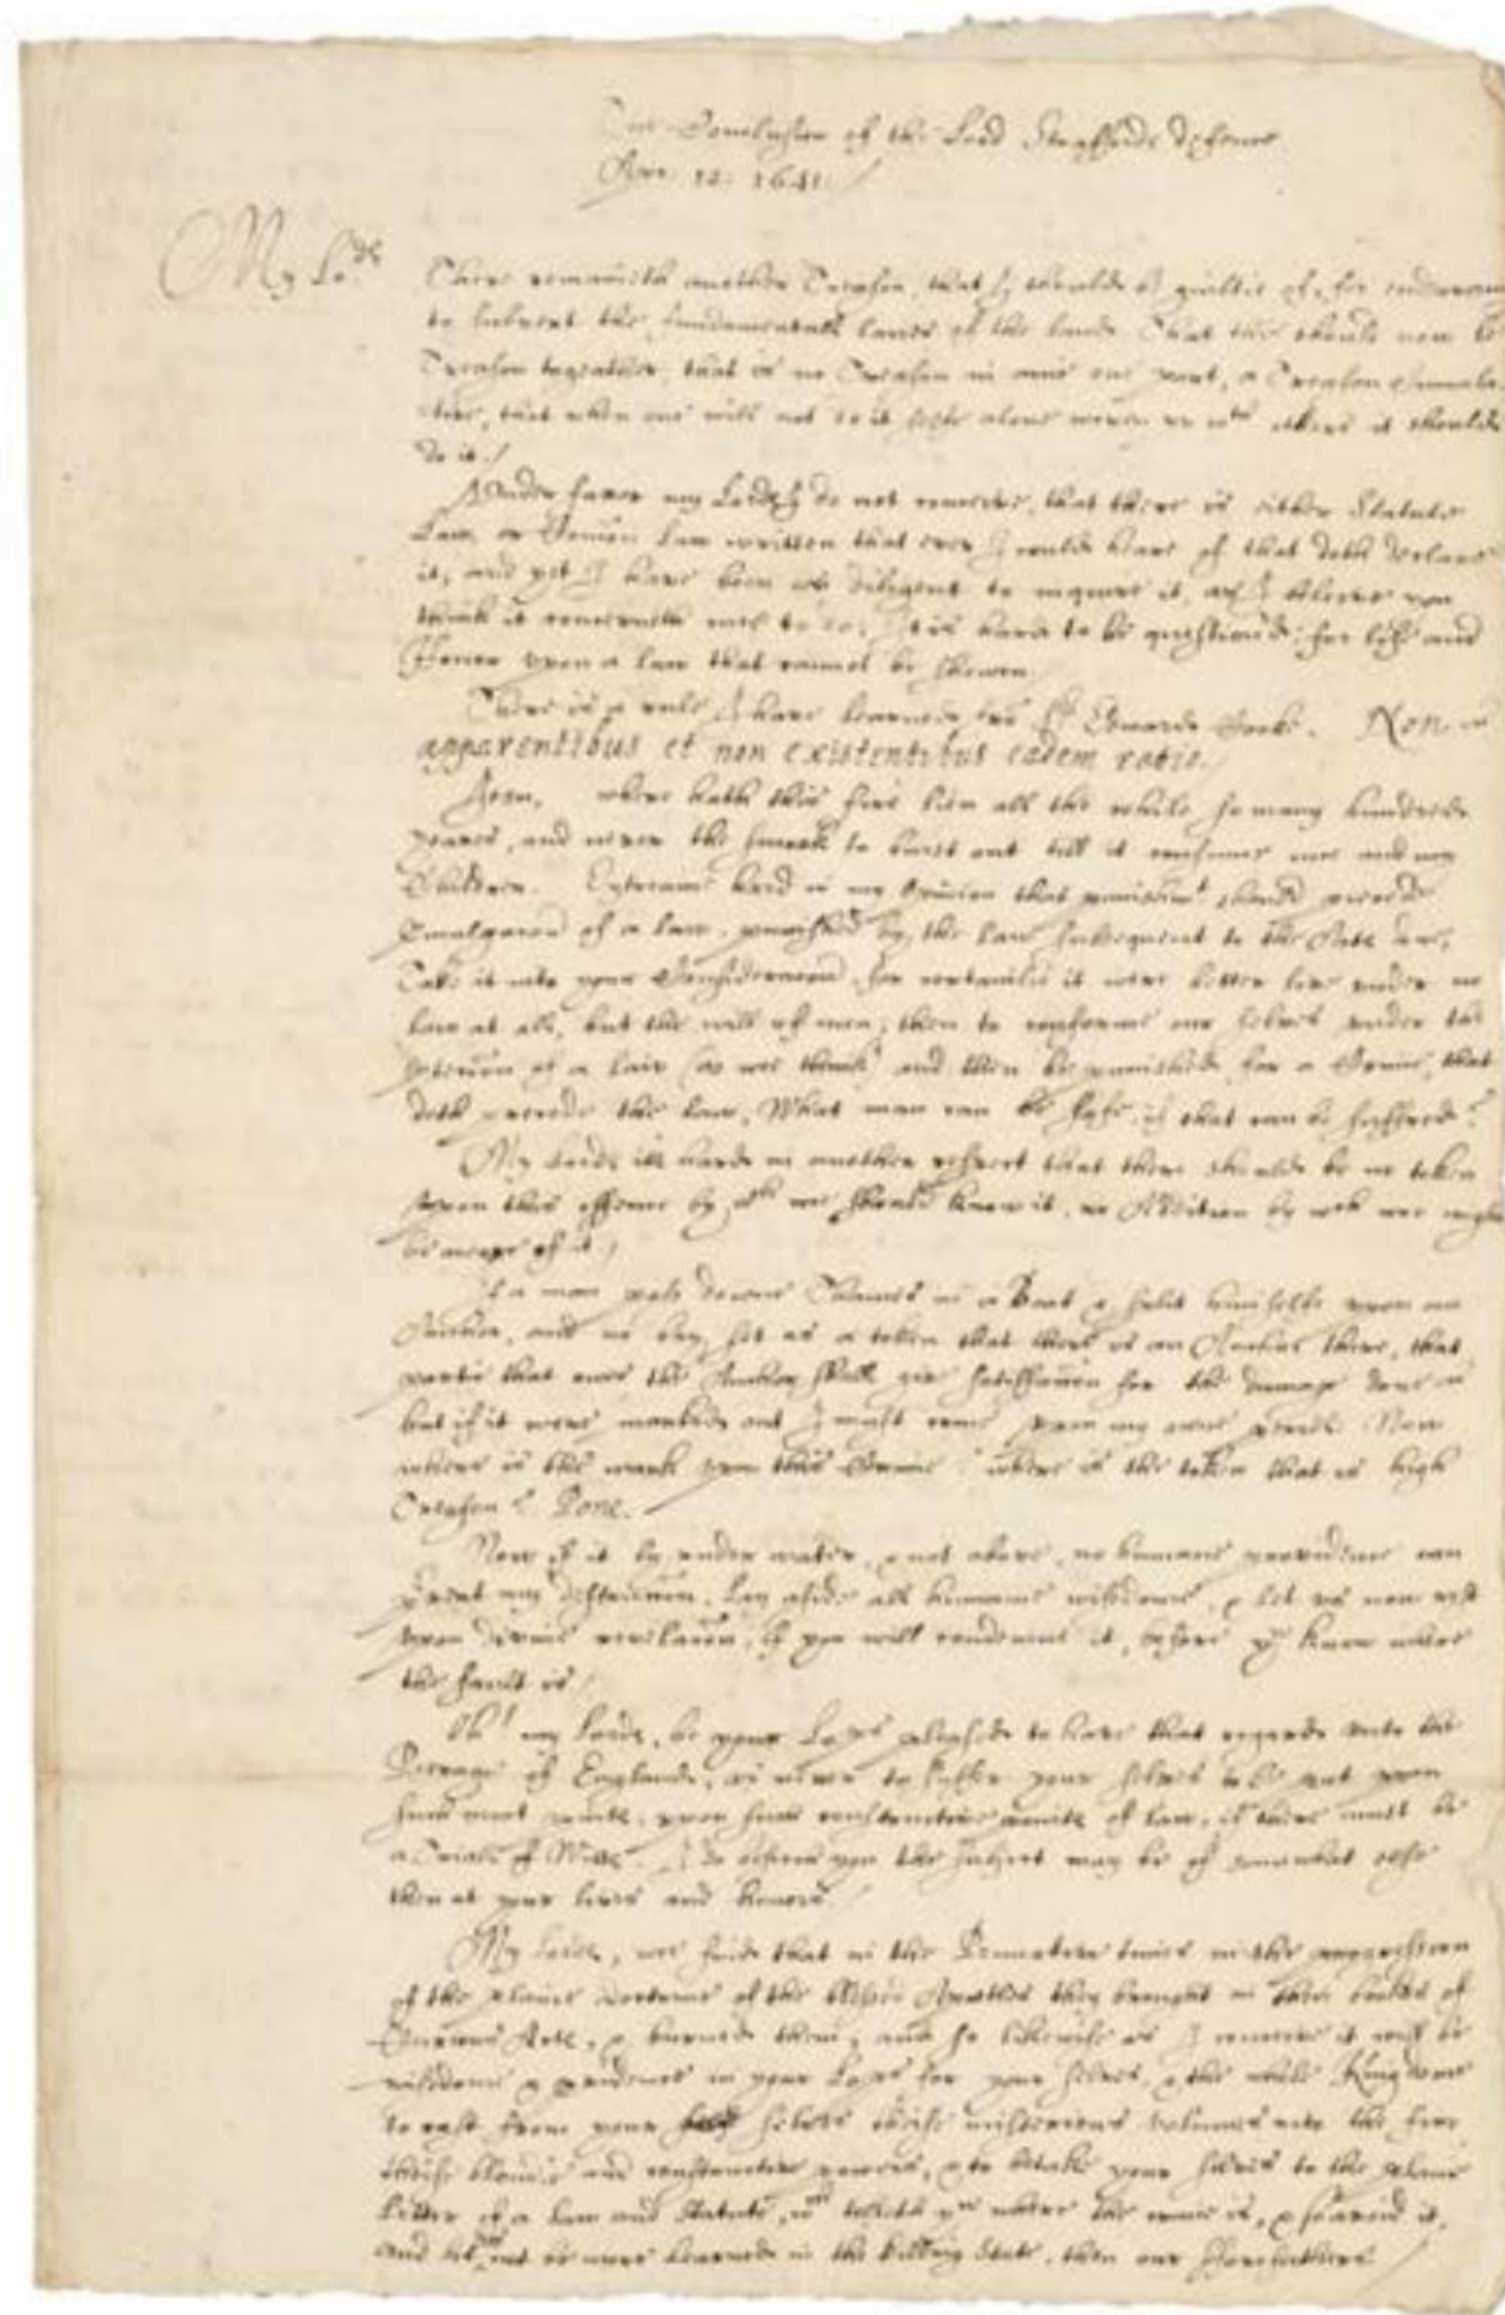 The Conclusion of the Lord Straffords defence
Apr. 12. 1641.
My Lo:ds There remaineth another Treason, that I shoulde be guiltie of, for endeavour
to subvert the fundamentall lawes of the land. That this should now be
Treason together, that is no Treason in anie one part, a Treason Accumula
tive, that when one will not do it alone woven up wth others it shoulde
do it./
Under favor my Lords I do not conceive, that there is either Statute
Law, or Comon law written that ever I coulde heare of that doth declare
it, and yet I have been as diligent to inquire it, as I beleeve you
think it concerneth mee to do; It is hard to be questiond for life and
Honor upon a law that cannot be shewen.
There is a rule I have learned from Sr Edwarde Cooke. Non
apparentibus et non existentibus eadem ratio.
Jesu, where hath this fire lien all this while so many hundreds
yeares, and never the smoak to burst out till it consumes mee and my
Children. Extreame hard in my Opinion that punishmt should precede
Promulgation of a law, punished by the law subsequent to the Acte
Take it into your Consideration for certainlie it were better live under no
law at all, but the will of men, then to conforme our selves under the
of a law (as wee think) and then be punished for a Crime, that
doth precede the law, What man can be safe if that can be suffered?
My Lords its harde in another respect that there shoulde be no token
upon this offence by wch wee should know it, no Addition by wch wee might
be aware of it./
If a man pass downe Thames in a Boat & split himselfe upon an
Anchor, and no boy set as a token that there is an Anchor there, that
partie that owes the Anchor shall give satisfaction for the damage done
but if it were marked out I must come upon my owne peril. Now
where is this mark upon this Crime? where is the token that is high
Treason?
Now if it be under water, & not above, no humane providence can
prevent my destruction. Lay aside all humane wisdome, & let us now rest
upon divine revelation, if you will condemne it, before yu know where
the fault is/
Oh! my Lords, be your Lopps pleased to have that regarde unto the
Peerage of Englande, as never to suffer your selves to be put upon
such moot points, upon such constructive points of law, if there must be
a Triall of Witts. I do beseech you the subject may be of somewhat else
then at your lives and honors./
My Lords, wee finde that in the Primative times in the progression
of the plaine doctrine of the blessed Apostles they brought in their bookes of
Curious Arte, & burned them, and so likewise as I conceive it will be
wisdome & prudence in your Lopps for your selves, & the whole Kingdome
to cast from your selves these misterious volumes into the fire
these bloudie and constructive powers, & to betake your selves to the plaine
letter of a law and Statute, wch telleth yu where the crime is, & to avoid it,
and let us not be more learned in the killing State, then our Forefathers./